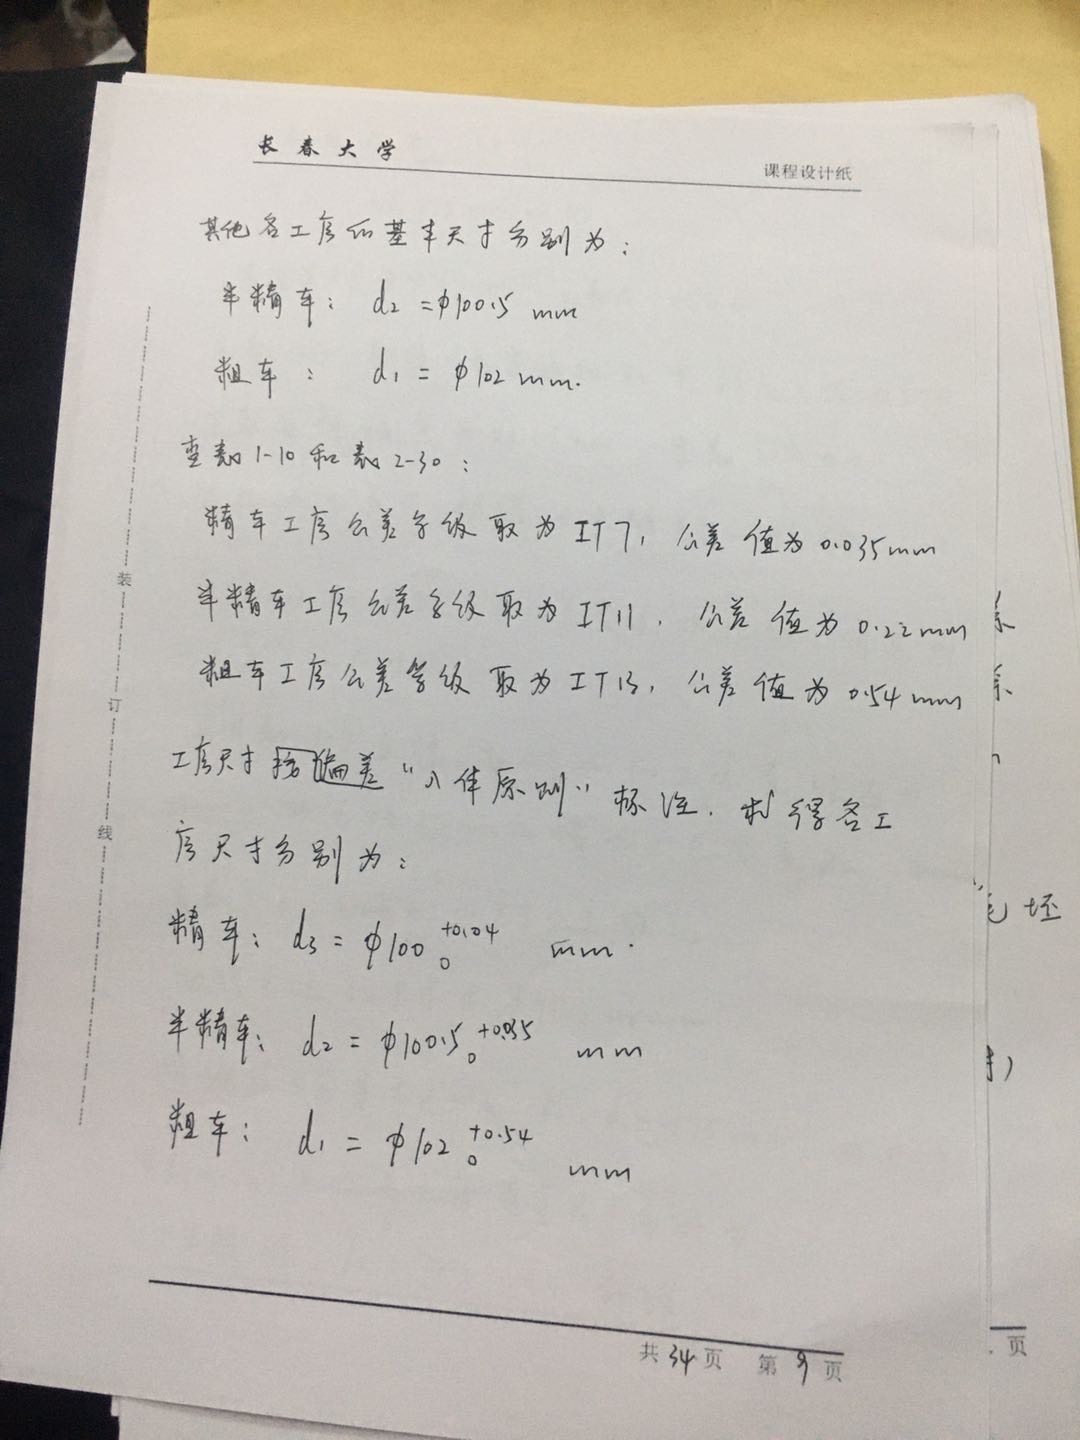 长春大学
课程设计纸
其他各工序的基本尺寸分别为:
半精车: d₂=φ100.5 mm
粗车: d₁=φ102mm.
查表1-10和表2-30:
精车工序公差等级取为IT7, 公差值为0.035mm
半精车工序公差等级取为IT11, 公差值为0.22mm
粗车工序公差等级取为IT13, 公差值为0.54mm
工序尺寸按偏差“入体原则”标注. 求得各工
序尺寸分别为:
精车: d₃=φ100 +0.04 0 mm.
半精车: d₂=φ100.5 +0.035 0 mm
粗车: d₁=φ102 +0.54 0 mm
装
订
线
共34页 第9页
毛坯
页